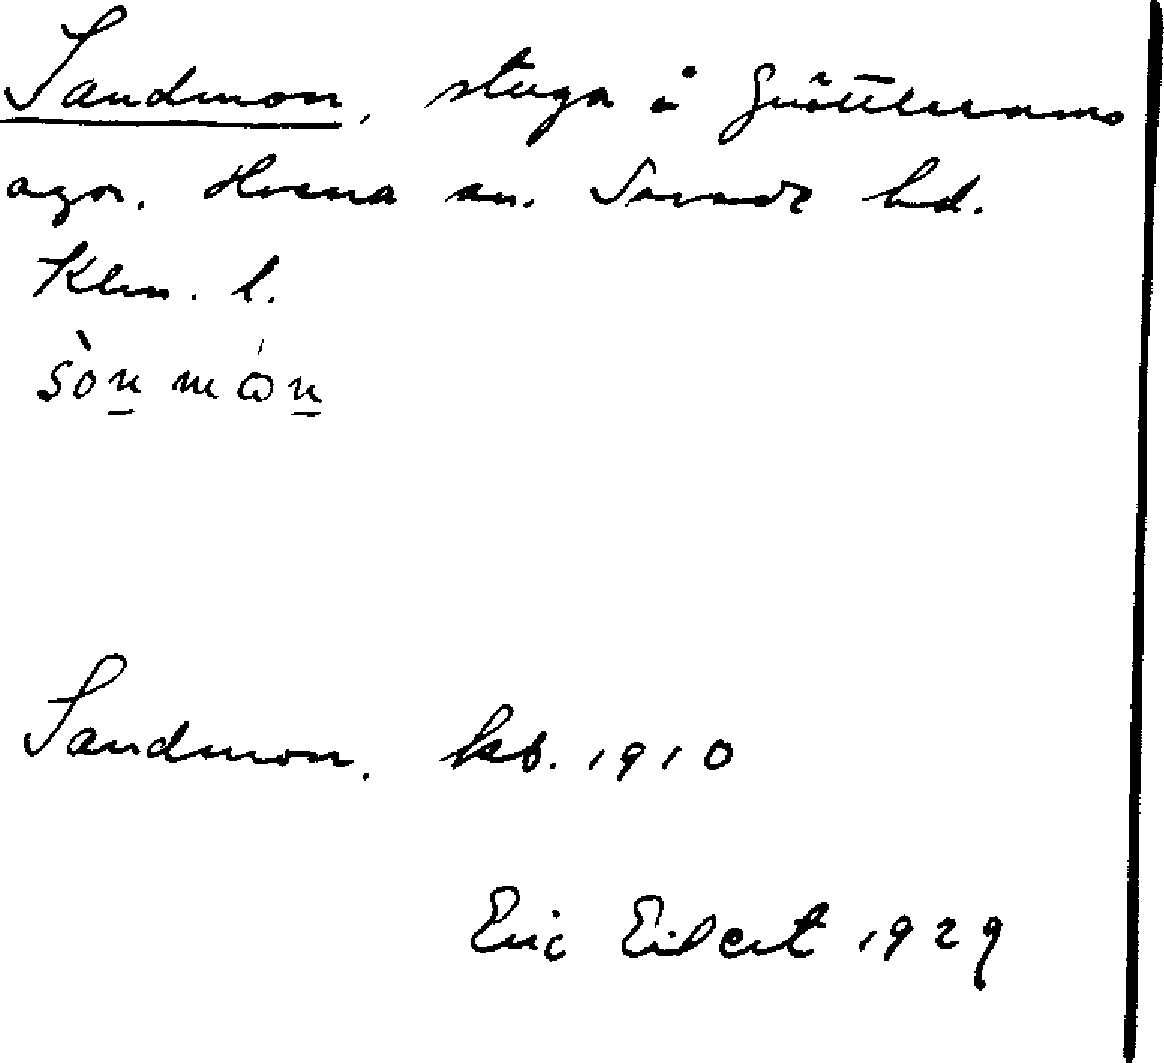 Sandmon, stuga i
ägor. Hvena sn. Sevede hd.
Klm. l.
sòn món
Sandmon. kb. 1910
Eric Eilert 1929